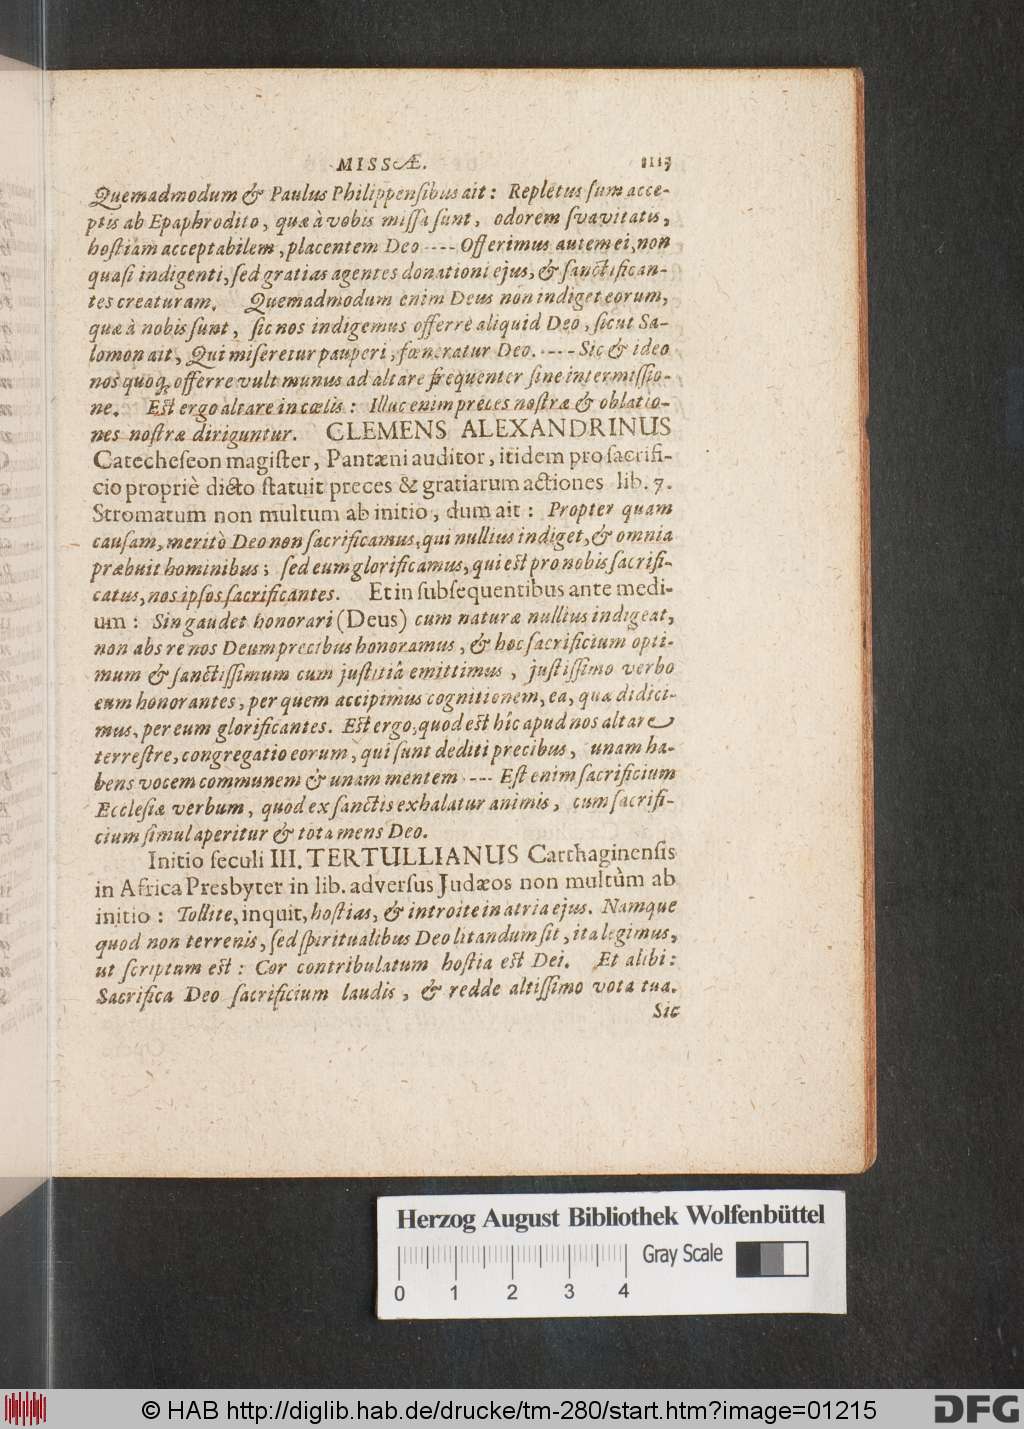 MISSÆ. 1113
Quemadmodum & Paulus Philippenſibus ait: Repletus ſum acce-
ptis ab Epaphrodito, quæ à vobis miſſa ſunt, odorem ſvavitatis,
hoſtiam acceptabilem, placentem Deo ---- Offerimus autem ei, non
quaſi indigenti, ſed gratias agentes donationi ejus, & ſanctifican-
tes creaturam. Quemadmodum enim Deus non indiget eorum,
quæ à nobis ſunt, ſic nos indigemus offerre aliquid Deo, ſicut Sa-
lomon ait, Qui miſeretur pauperi, fœneratur Deo. ---- Sic & ideo
nos quoq; offerre vult munus ad altare frequenter ſine intermiſſio-
ne. Eſt ergo altare in cœlis: Illuc enim preces noſtræ & oblatio-
nes noſtræ diriguntur. CLEMENS ALEXANDRINUS
Catecheſeon magiſter, Pantæni auditor, itidem pro ſacrifi-
cio propriè dicto ſtatuit preces & gratiarum actiones lib. 7.
Stromatum non multum ab initio, dum ait: Propter quam
cauſam, meritò Deo non ſacrificamus, qui nullius indiget, & omnia
præbuit hominibus; ſed eum glorificamus, qui eſt pro nobis ſacrifi-
catus, nos ipſos ſacrificantes. Et in ſubſequentibus ante medi-
um: Sin gaudet honorari (Deus) cum naturæ nullius indigeat,
non abs re nos Deum precibus honoramus, & hoc ſacrificium opti-
mum & ſanctiſſimum cum juſtitiâ emittimus, juſtiſſimo verbo
eum honorantes, per quem accipimus cognitionem, ea, quæ didici-
mus, per eum glorificantes. Eſt ergo, quod eſt hîc apud nos altare
terreſtre, congregatio eorum, qui ſunt dediti precibus, unam ha-
bens vocem communem & unam mentem --- Eſt enim ſacrificium
Eccleſiæ verbum, quod ex ſanctis exhalatur animis, cum ſacrifi-
cium ſimul aperitur & tota mens Deo.
Initio ſeculi III. TERTULLIANUS Carthaginenſis
in Africa Presbyter in lib. adverſus Judæos non multùm ab
initio: Tollite, inquit, hoſtias, & introite in atria ejus. Namque
quod non terrenis, ſed ſpiritualibus Deo litandum ſit, ita legimus,
ut ſcriptum eſt: Cor contribulatum hoſtia eſt Dei. Et alibi:
Sacrifica Deo ſacrificium laudis, & redde altiſſimo vota tua.
Sic
Herzog August Bibliothek Wolfenbüttel
Gray Scale
0 1 2 3 4
© HAB http://diglib.hab.de/drucke/tm-280/start.htm?image=01215
DFG